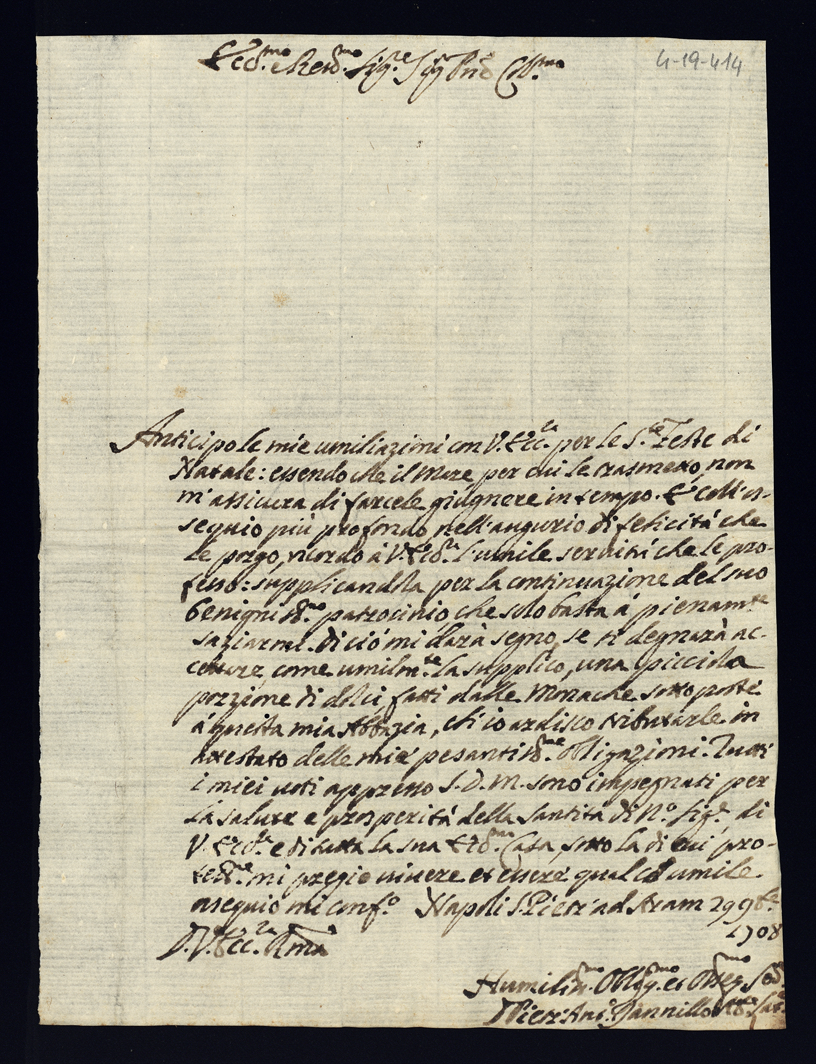 Ecc.mo e Rev.mo Sig.re Sig.r Pne Col.mo
4-19-414
Anticipo le mie umiliazioni con V. Ecc.za per le S.te Feste di
Natale: essendo che il Mare per cui le trasmetto, non
m'assicura di farcele giugnere in tempo. Et coll'os-
sequio più profondo nell'augurio di felicità che
Le porgo, ricordo à V. Ecc.za l'umile servitù che le pro-
fesso: supplicandola per la continuazione del suo
benigniss.mo patrocinio, che solo basta à pienam.te
saziarmi. Di ciò mi darà segno, se si degnarà ac-
cettare, come umilm.te la supplico, una picciola
porzione di dolci, fatti dalle Monache sottoposte
à questa mia Abbazia, ch'io ardisco tributarle in
attestato delle mie pesantiss.me Obligazioni. Tutti
i miei voti appresso S. D. M. sono impegnati per
La salute e prosperità della Santità di N.ro Sig.re di
V. Ecc.za e di tutta la sua Ecc.ma Casa, sotto la di cui pro-
tez.ne mi pregio vivere et essere qual col umile
ossequio mi conf.o Napoli S. Pietr' ad Aram 29 9b.re
1708
D. V. Ecc.za R.ma
Humiliss.mo Oblig.mo et Osseq.mo Ser.
D. Pietr' Ant.o Jannillo